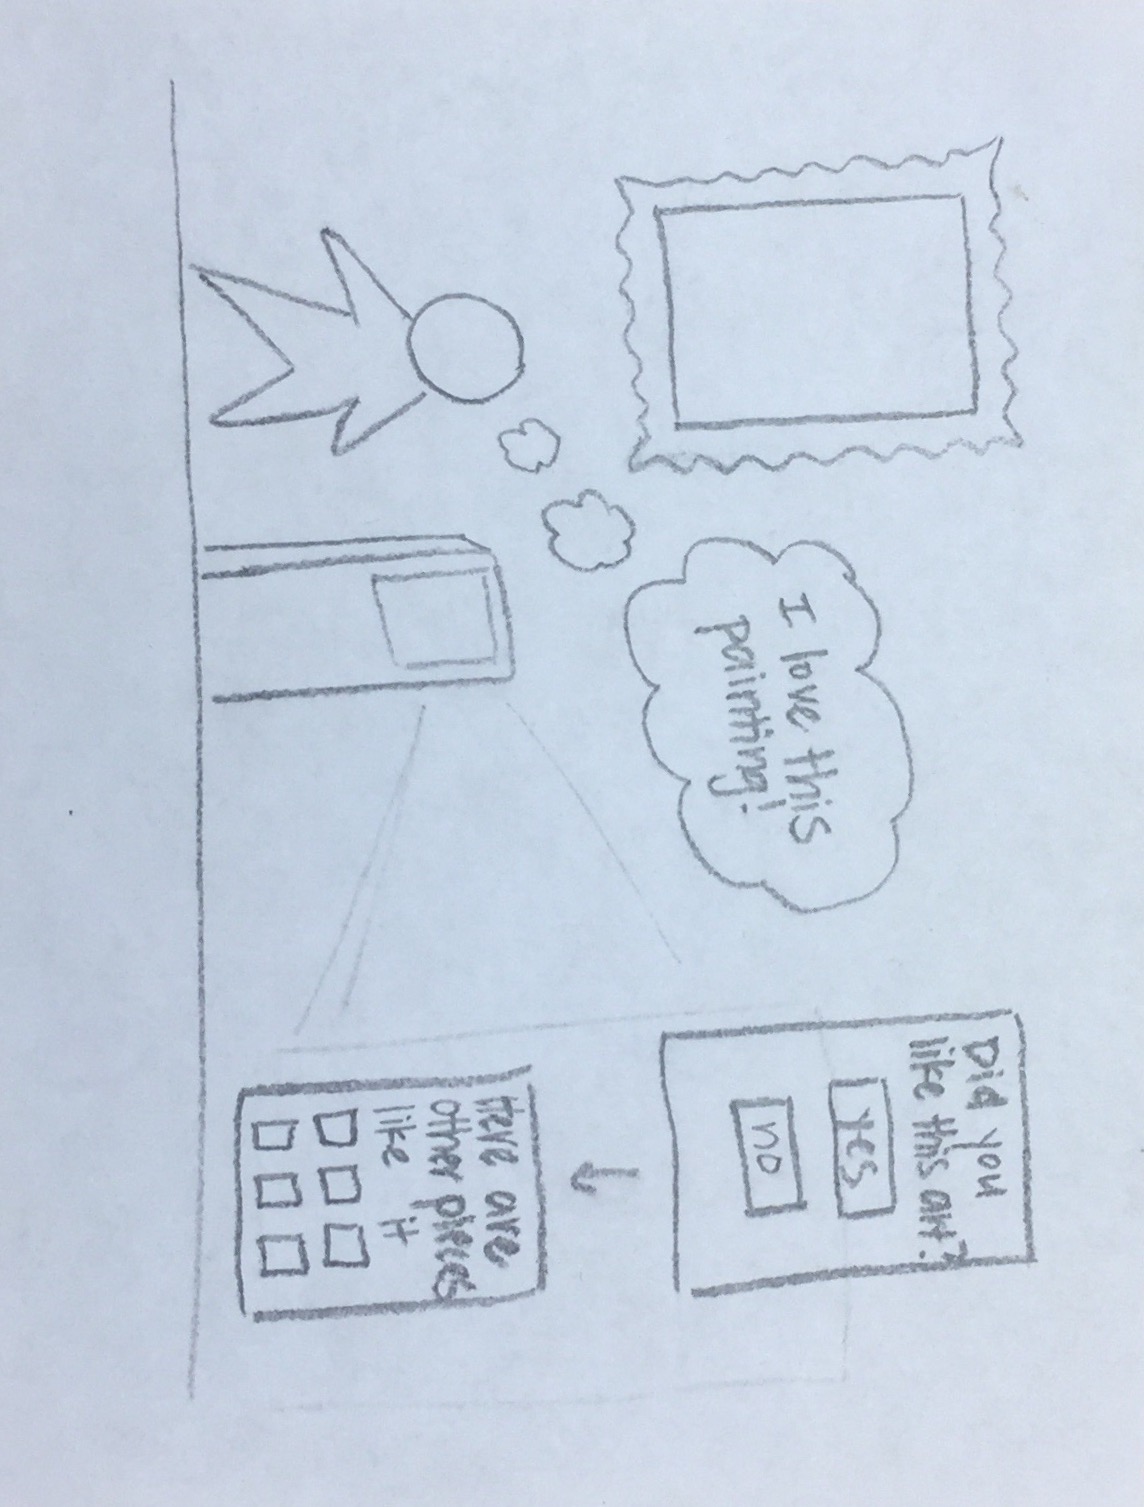 I love this
painting!
Did you
like this art?
yes
no
Here are
other pieces
like it